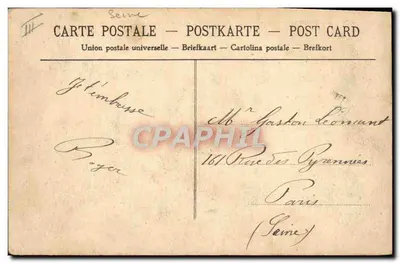 Seine
III
CARTE POSTALE — POSTKARTE — POST CARD
Union postale universelle — Briefkaart — Cartolina postale — Brefkort
Je t'embrasse
Roger
CPARAMA.COM
Mr Gaston Léonant
161 Rue des Pyrénnées
Paris
(Seine)